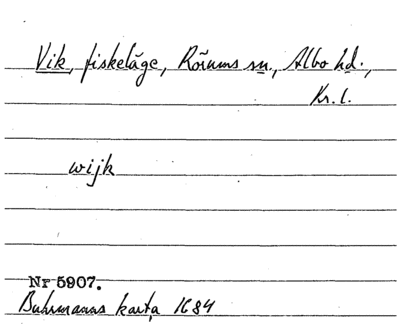 Vik, fiskeläge, Rörums sn., Albo hd.,
Kr. l.
wijk
Nr 5907.
Buhrmanns karta 1684